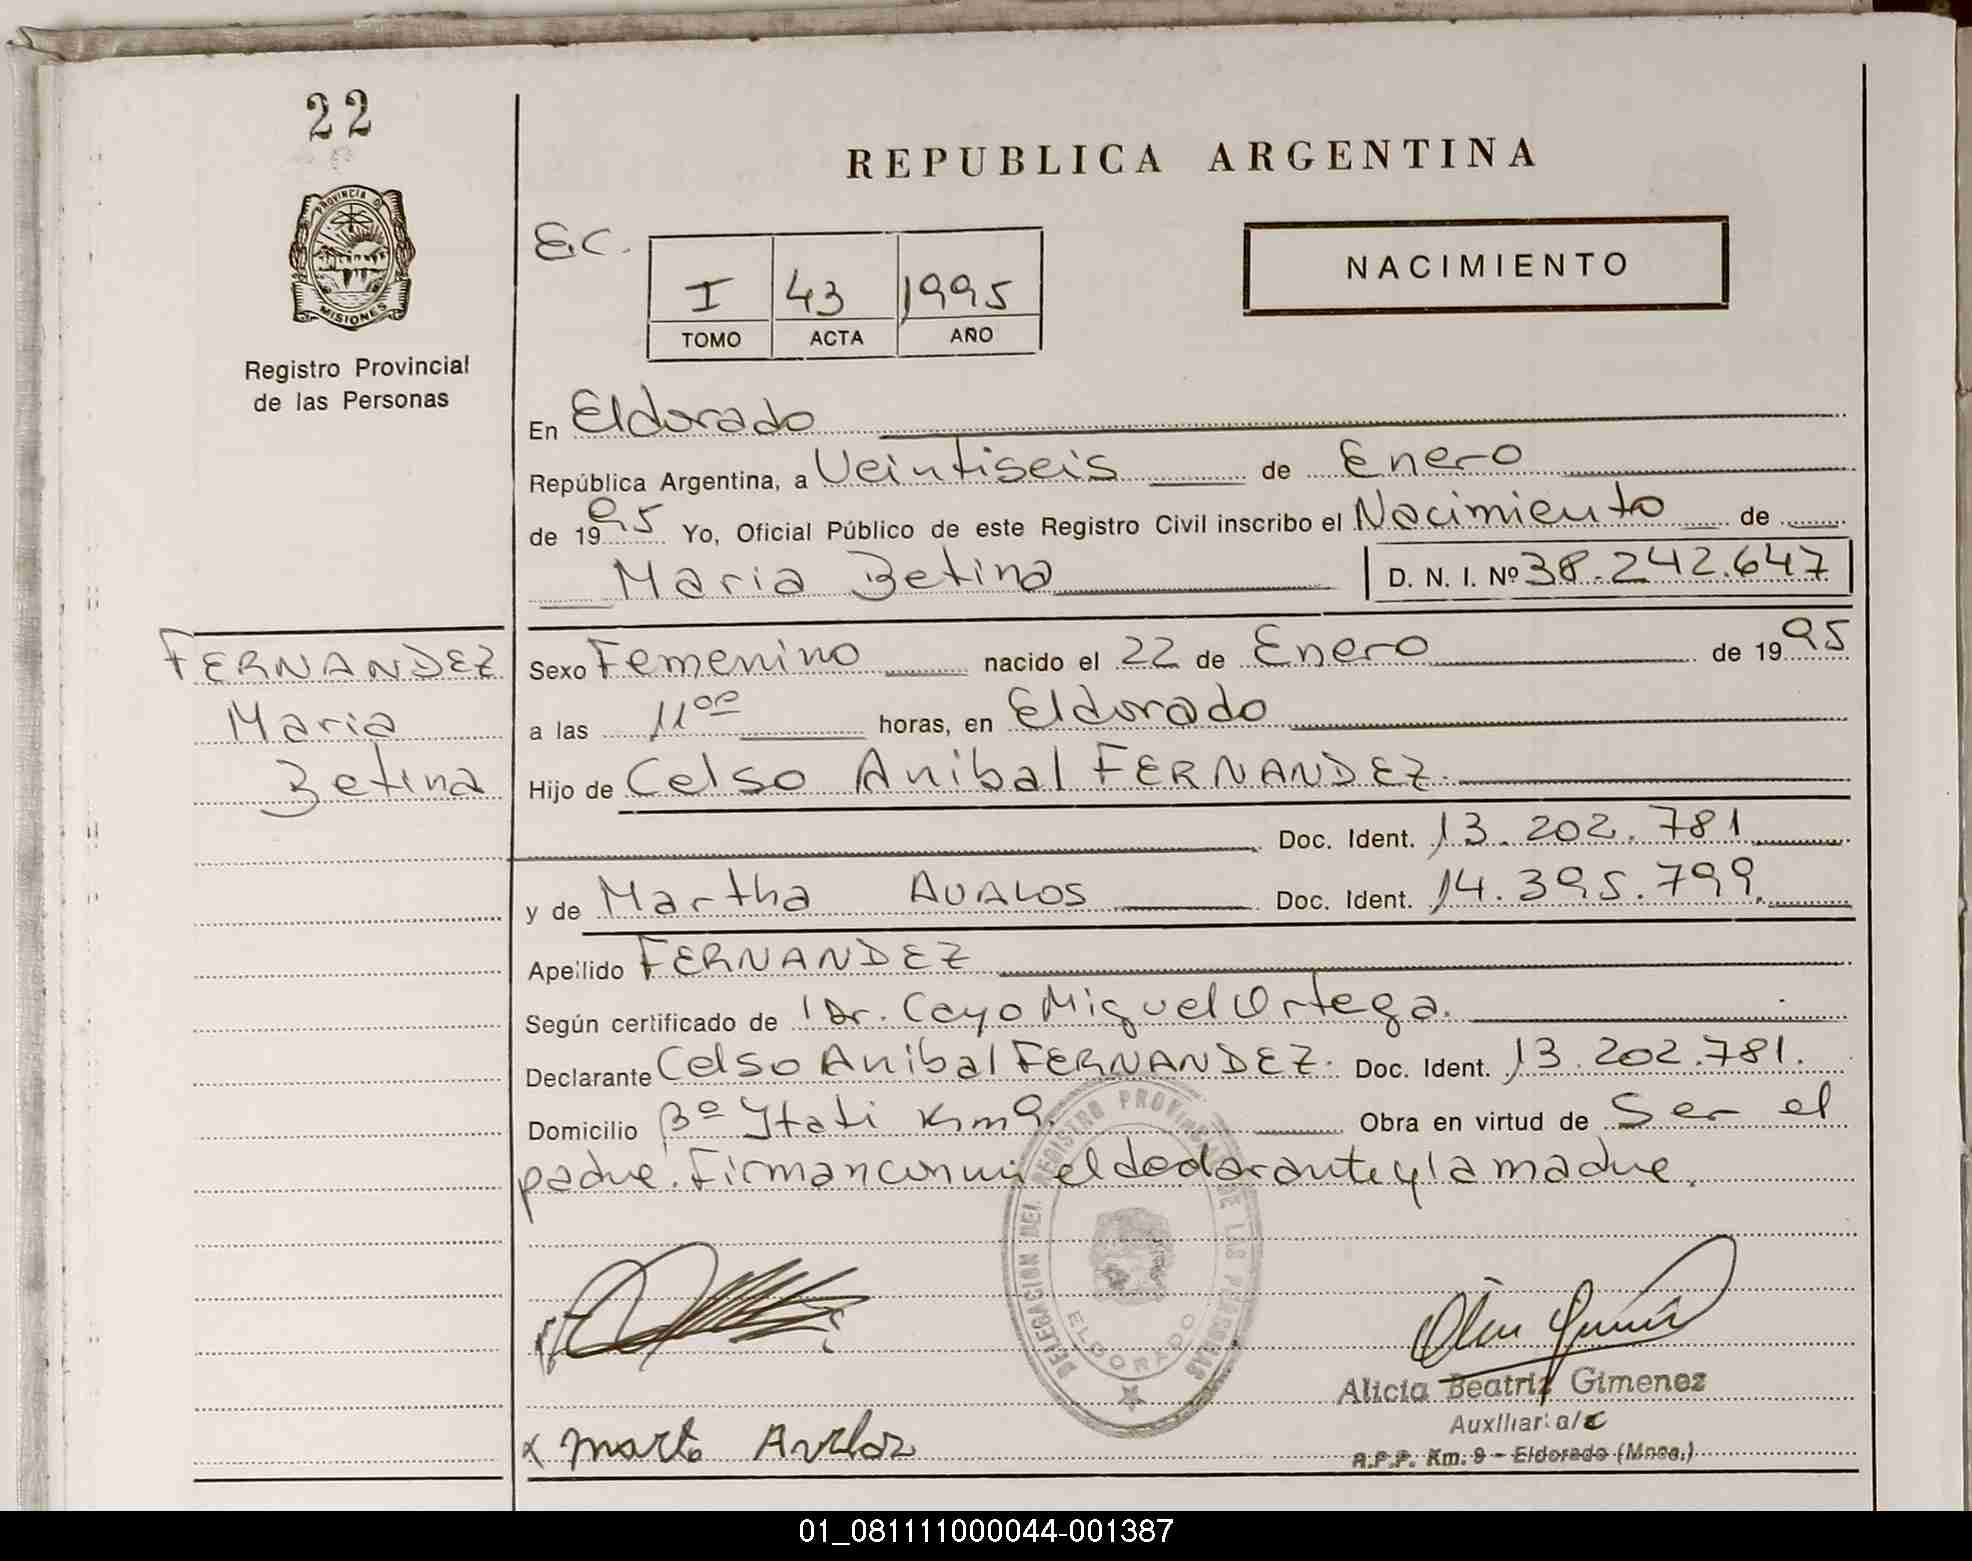 22
REPUBLICA ARGENTINA
PROVINCIA D
MISIONES
E.C.
I 43 1995
TOMO ACTA AÑO
NACIMIENTO
Registro Provincial
de las Personas
En Eldorado
República Argentina, a Veintiseis de Enero
de 1995 Yo, Oficial Público de este Registro Civil inscribo el Nacimiento de
Maria Betina D. N. I. Nº 38.242.647
FERNANDEZ
Maria
Betina
Sexo Femenino nacido el 22 de Enero de 1995
a las 11ºº horas, en Eldorado
Hijo de Celso Anibal FERNANDEZ.
Doc. Ident. 13.202.781
y de Martha AVALOS Doc. Ident. 14.395.799.
Apellido FERNANDEZ
Según certificado de Dr. Cayo Miguel Ortega.
Declarante Celso Anibal FERNANDEZ. Doc. Ident. 13.202.781.
Domicilio Bº Ytati Km 9. Obra en virtud de Ser el
padre. Firman con mi el declarante y la madre.
DELEGACION DEL REGISTRO PROVINCIAL DE LAS PERSONAS
ELDORADO
Alicia Beatriz Gimenez
Auxiliar a/c
R.P.P. Km. 9 - Eldorado (Mnes.)
x Marta Avalos
01_081111000044-001387